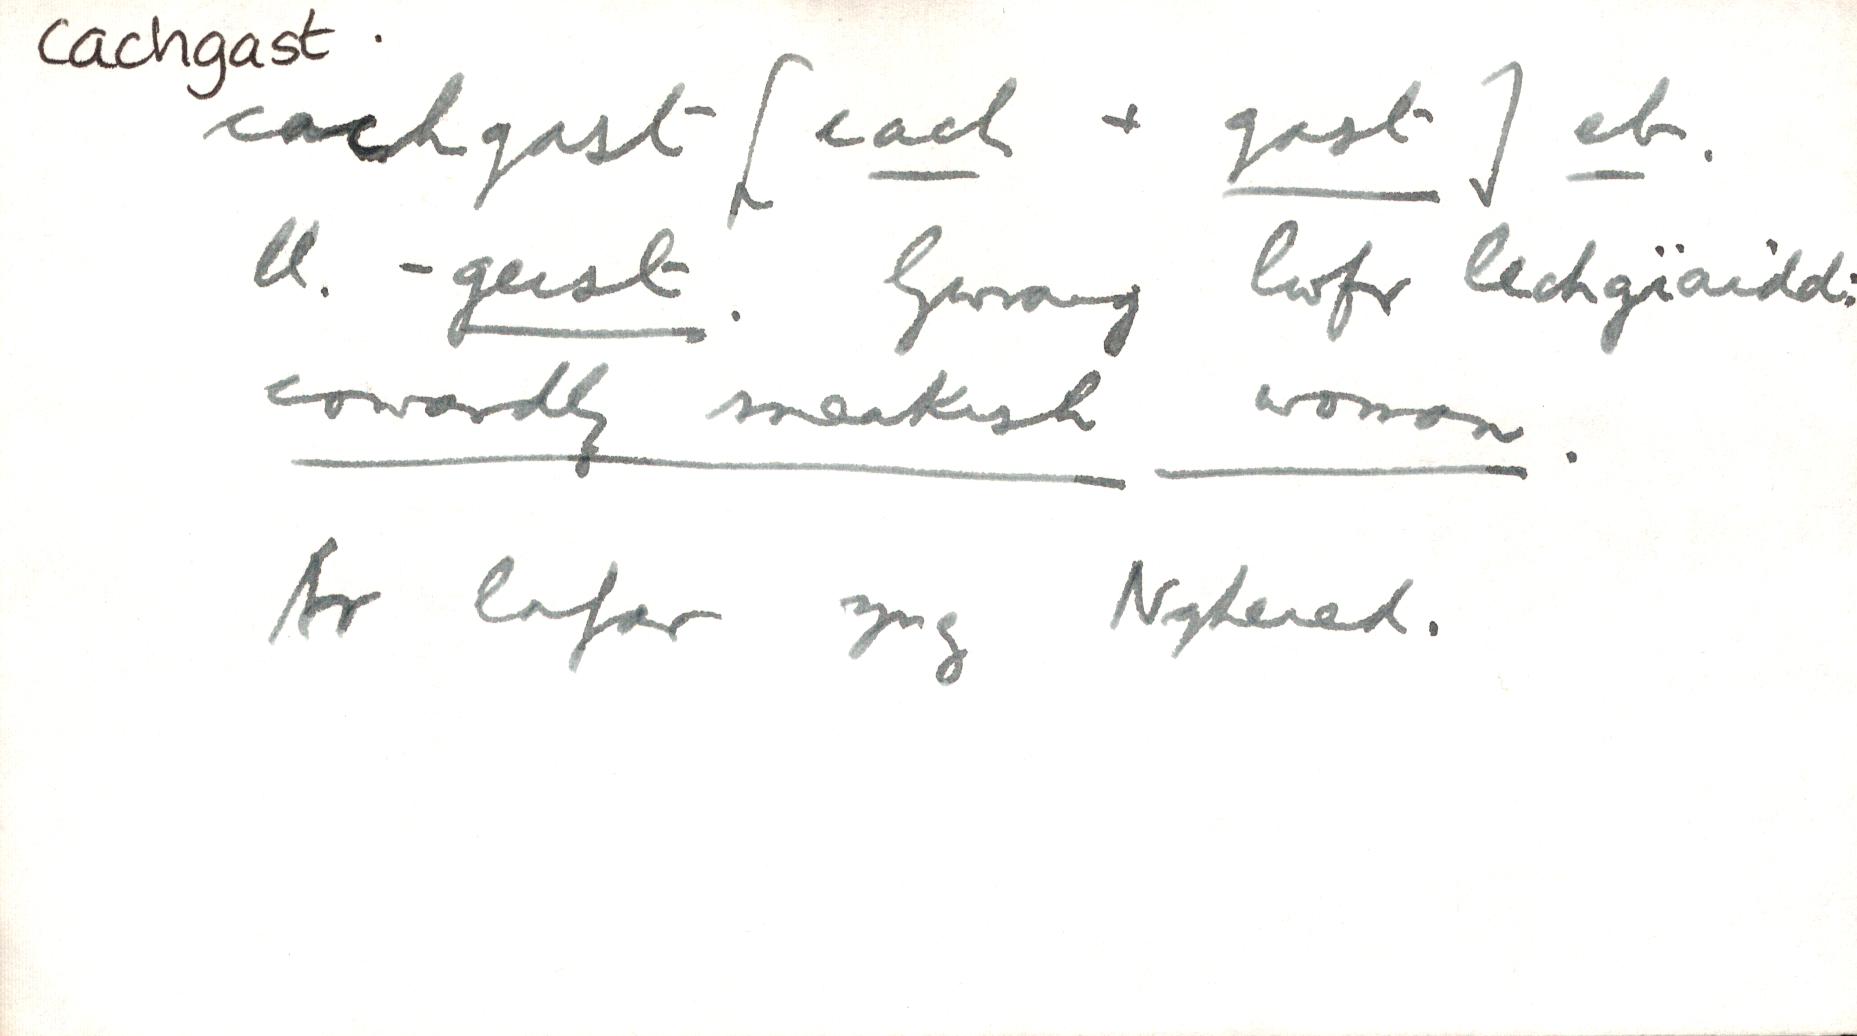 cachgast.
cachgast [cach + gast] eb.
ll. -geist. Gwraig lwfr lechgïaidd:
cowardly sneakish woman.
Ar lafar yng Nghered.